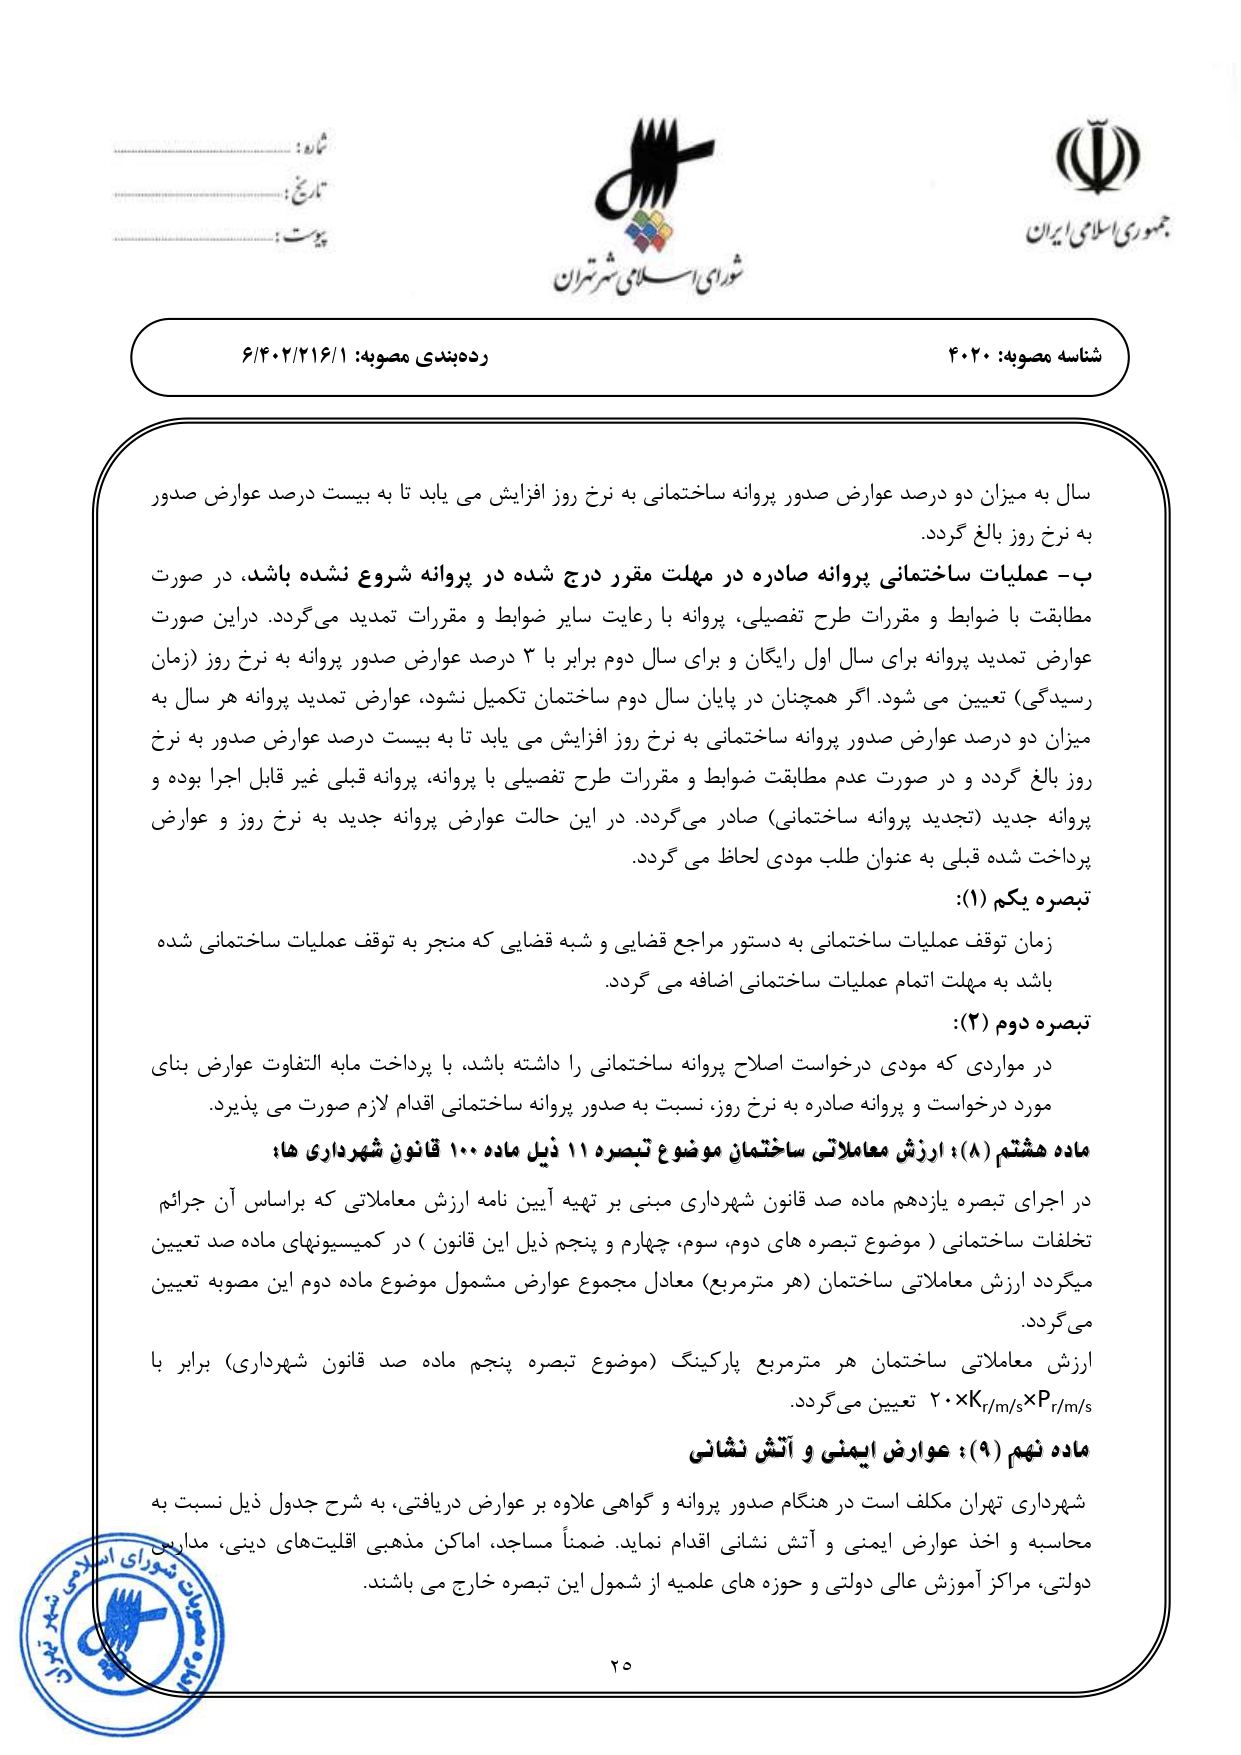 جمهوری اسلامی ایران
شورای اسلامی شهر تهران
شماره :
تاریخ :
پیوست :
شناسه مصوبه: ۴۰۲۰
رده‌بندی مصوبه: ۶/۴۰۲/۲۱۶/۱
سال به میزان دو درصد عوارض صدور پروانه ساختمانی به نرخ روز افزایش می یابد تا به بیست درصد عوارض صدور
به نرخ روز بالغ گردد.
ب- عملیات ساختمانی پروانه صادره در مهلت مقرر درج شده در پروانه شروع نشده باشد، در صورت
مطابقت با ضوابط و مقررات طرح تفصیلی، پروانه با رعایت سایر ضوابط و مقررات تمدید می‌گردد. دراین صورت
عوارض تمدید پروانه برای سال اول رایگان و برای سال دوم برابر با ۳ درصد عوارض صدور پروانه به نرخ روز (زمان
رسیدگی) تعیین می شود. اگر همچنان در پایان سال دوم ساختمان تکمیل نشود، عوارض تمدید پروانه هر سال به
میزان دو درصد عوارض صدور پروانه ساختمانی به نرخ روز افزایش می یابد تا به بیست درصد عوارض صدور به نرخ
روز بالغ گردد و در صورت عدم مطابقت ضوابط و مقررات طرح تفصیلی با پروانه، پروانه قبلی غیر قابل اجرا بوده و
پروانه جدید (تجدید پروانه ساختمانی) صادر می‌گردد. در این حالت عوارض پروانه جدید به نرخ روز و عوارض
پرداخت شده قبلی به عنوان طلب مودی لحاظ می گردد.
تبصره یکم (۱):
زمان توقف عملیات ساختمانی به دستور مراجع قضایی و شبه قضایی که منجر به توقف عملیات ساختمانی شده
باشد به مهلت اتمام عملیات ساختمانی اضافه می گردد.
تبصره دوم (۲):
در مواردی که مودی درخواست اصلاح پروانه ساختمانی را داشته باشد، با پرداخت مابه التفاوت عوارض بنای
مورد درخواست و پروانه صادره به نرخ روز، نسبت به صدور پروانه ساختمانی اقدام لازم صورت می پذیرد.
ماده هشتم (۸): ارزش معاملاتی ساختمان موضوع تبصره ۱۱ ذیل ماده ۱۰۰ قانون شهرداری ها:
در اجرای تبصره یازدهم ماده صد قانون شهرداری مبنی بر تهیه آیین نامه ارزش معاملاتی که براساس آن جرائم
تخلفات ساختمانی ( موضوع تبصره های دوم، سوم، چهارم و پنجم ذیل این قانون ) در کمیسیونهای ماده صد تعیین
میگردد ارزش معاملاتی ساختمان (هر مترمربع) معادل مجموع عوارض مشمول موضوع ماده دوم این مصوبه تعیین
می‌گردد.
ارزش معاملاتی ساختمان هر مترمربع پارکینگ (موضوع تبصره پنجم ماده صد قانون شهرداری) برابر با
۲۰×Kr/m/s×Pr/m/s تعیین می‌گردد.
ماده نهم (۹): عوارض ایمنی و آتش نشانی
شهرداری تهران مکلف است در هنگام صدور پروانه و گواهی علاوه بر عوارض دریافتی، به شرح جدول ذیل نسبت به
محاسبه و اخذ عوارض ایمنی و آتش نشانی اقدام نماید. ضمناً مساجد، اماکن مذهبی اقلیت‌های دینی، مدارس
دولتی، مراکز آموزش عالی دولتی و حوزه های علمیه از شمول این تبصره خارج می باشند.
اداره مصوبات شورای اسلامی شهر تهران
۲۵